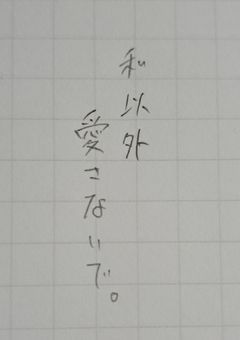 私以外
愛さないで。